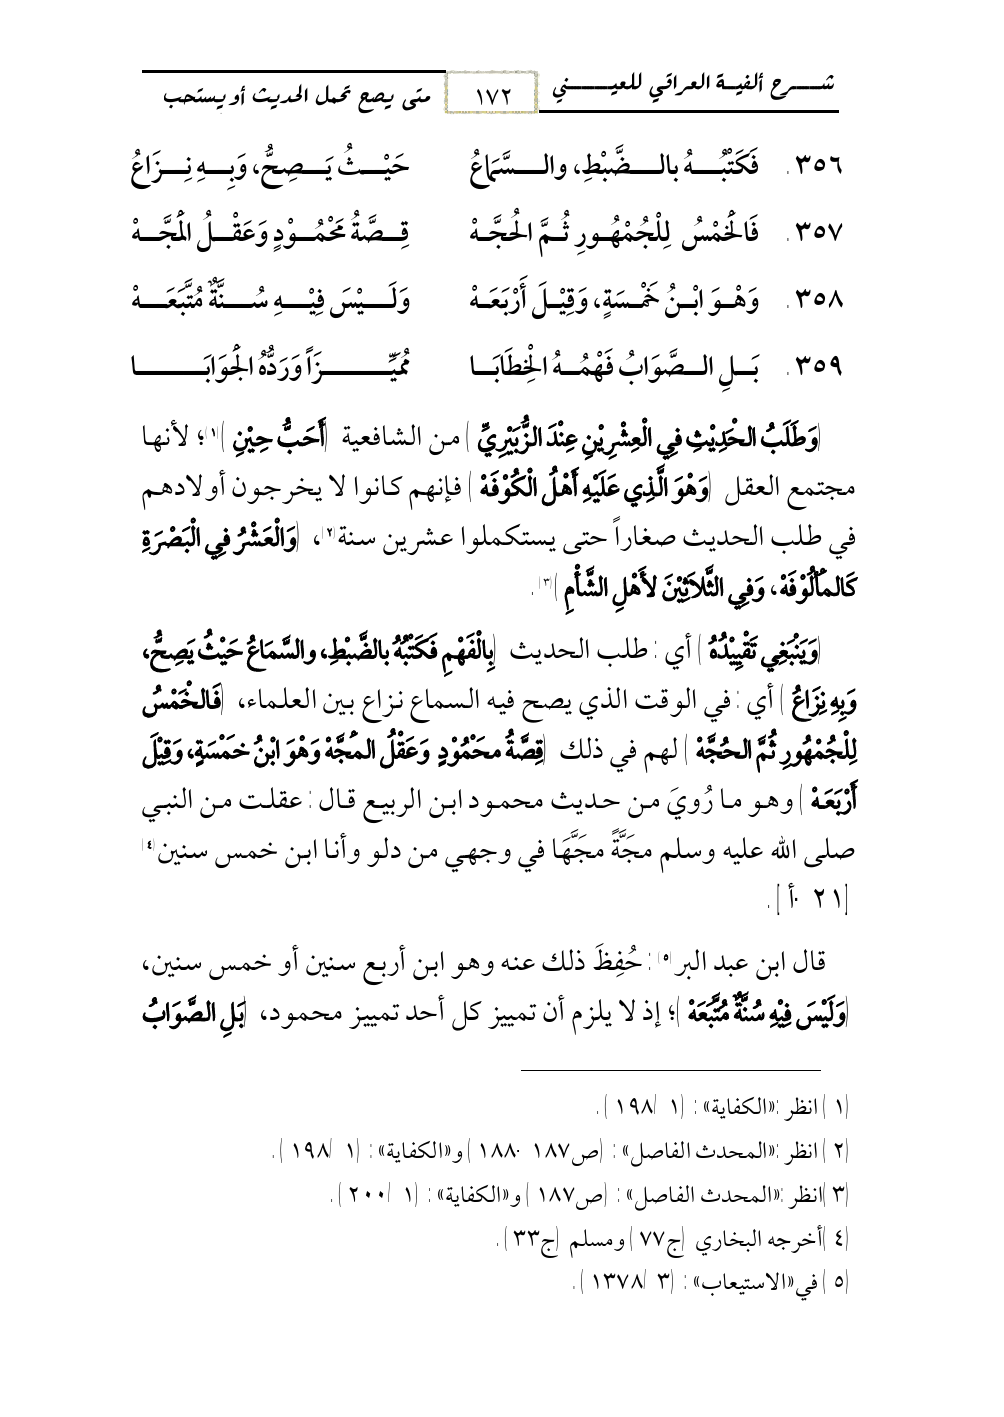 شـــرح ألفيـة العراقي للعيــــــني
١٧٢
متى يصح تحمل الحديث أو يستحب
٣٥٦. فَكَتْبُـــهُ بالـــضَّبْطِ، والـــسَّمَاعُ حَيْـــثُ يَـــصِحُّ، وَبِـــهِ نِـــزَاعُ
٣٥٧. فَالْخَمْسُ لِلْجُمْهُـورِ ثُـمَّ الحُجَّـهْ قِـصَّةُ مَحْمُـوْدٍ وَعَقْـلُ المَجَّـهْ
٣٥٨. وَهْـوَ ابْـنُ خَمْـسَةٍ، وَقِيْـلَ أَرْبَعَـهْ وَلَـــيْسَ فِيْـــهِ سُـــنَّةٌ مُتَّبَعَـــهْ
٣٥٩. بَـلِ الـصَّوَابُ فَهْمُـهُ الْخِطَابَـا مُمَيِّـــــزَاً وَرَدُّهُ الْجَوَابَـــــا
(وَطَلَبُ الْحَدِيْثِ فِي الْعِشْرِيْنِ عِنْدَ الزُّبَيْرِيِّ) من الشافعية (أَحَبُّ حِيْنِ)(١)؛ لأنها
مجتمع العقل (وَهْوَ الَّذِي عَلَيْهِ أَهْلُ الْكُوْفَهْ) فإنهم كانوا لا يخرجون أولادهم
في طلب الحديث صغاراً حتى يستكملوا عشرين سنة(٢)، (وَالْعَشْرُ فِي الْبَصْرَةِ
كَالمأْلُوْفَهْ، وَفِي الثَّلاَثِيْنَ لأَهْلِ الشَّأْمِ)(٣).
(وَيَنْبَغِي تَقْيِيْدُهُ) أي: طلب الحديث (بِالْفَهْمِ فَكَتْبُهُ بالضَّبْطِ، والسَّمَاعُ حَيْثُ يَصِحُّ،
وَبِهِ نِزَاعُ) أي: في الوقت الذي يصح فيه السماع نزاع بين العلماء، (فَالخْمَسُ
لِلْجُمْهُورِ ثُمَّ الحُجَّهْ) لهم في ذلك (قِصَّةُ محَمُوْدٍ وَعَقْلُ المَجَّهْ وَهْوَ ابْنُ خمَسَةٍ، وَقِيْلَ
أَرْبَعَهْ) وهو ما رُويَ من حديث محمود ابن الربيع قال: عقلت من النبي
صلى الله عليه وسلم مجَةًّ مجَهَّا في وجهي من دلو وأنا ابن خمس سنين(٤)
[٢١٠أ].
قال ابن عبد البر(٥): حُفِظَ ذلك عنه وهو ابن أربع سنين أو خمس سنين،
(وَلَيْسَ فِيْهِ سُنَّةٌ مُتَّبَعَهْ)؛ إذ لا يلزم أن تمييز كل أحد تمييز محمود، (بَلِ الصَّوَابُ
(١) انظر: «الكفاية»: (١/١٩٨).
(٢) انظر: «المحدث الفاصل»: (ص١٨٧-١٨٨) و«الكفاية»: (١/١٩٨).
(٣) انظر: «المحدث الفاصل»: (ص١٨٧) و«الكفاية»: (١/٢٠٠).
(٤) أخرجه البخاري (ح٧٧) ومسلم (ح٣٣).
(٥) في «الاستيعاب»: (٣/١٣٧٨).